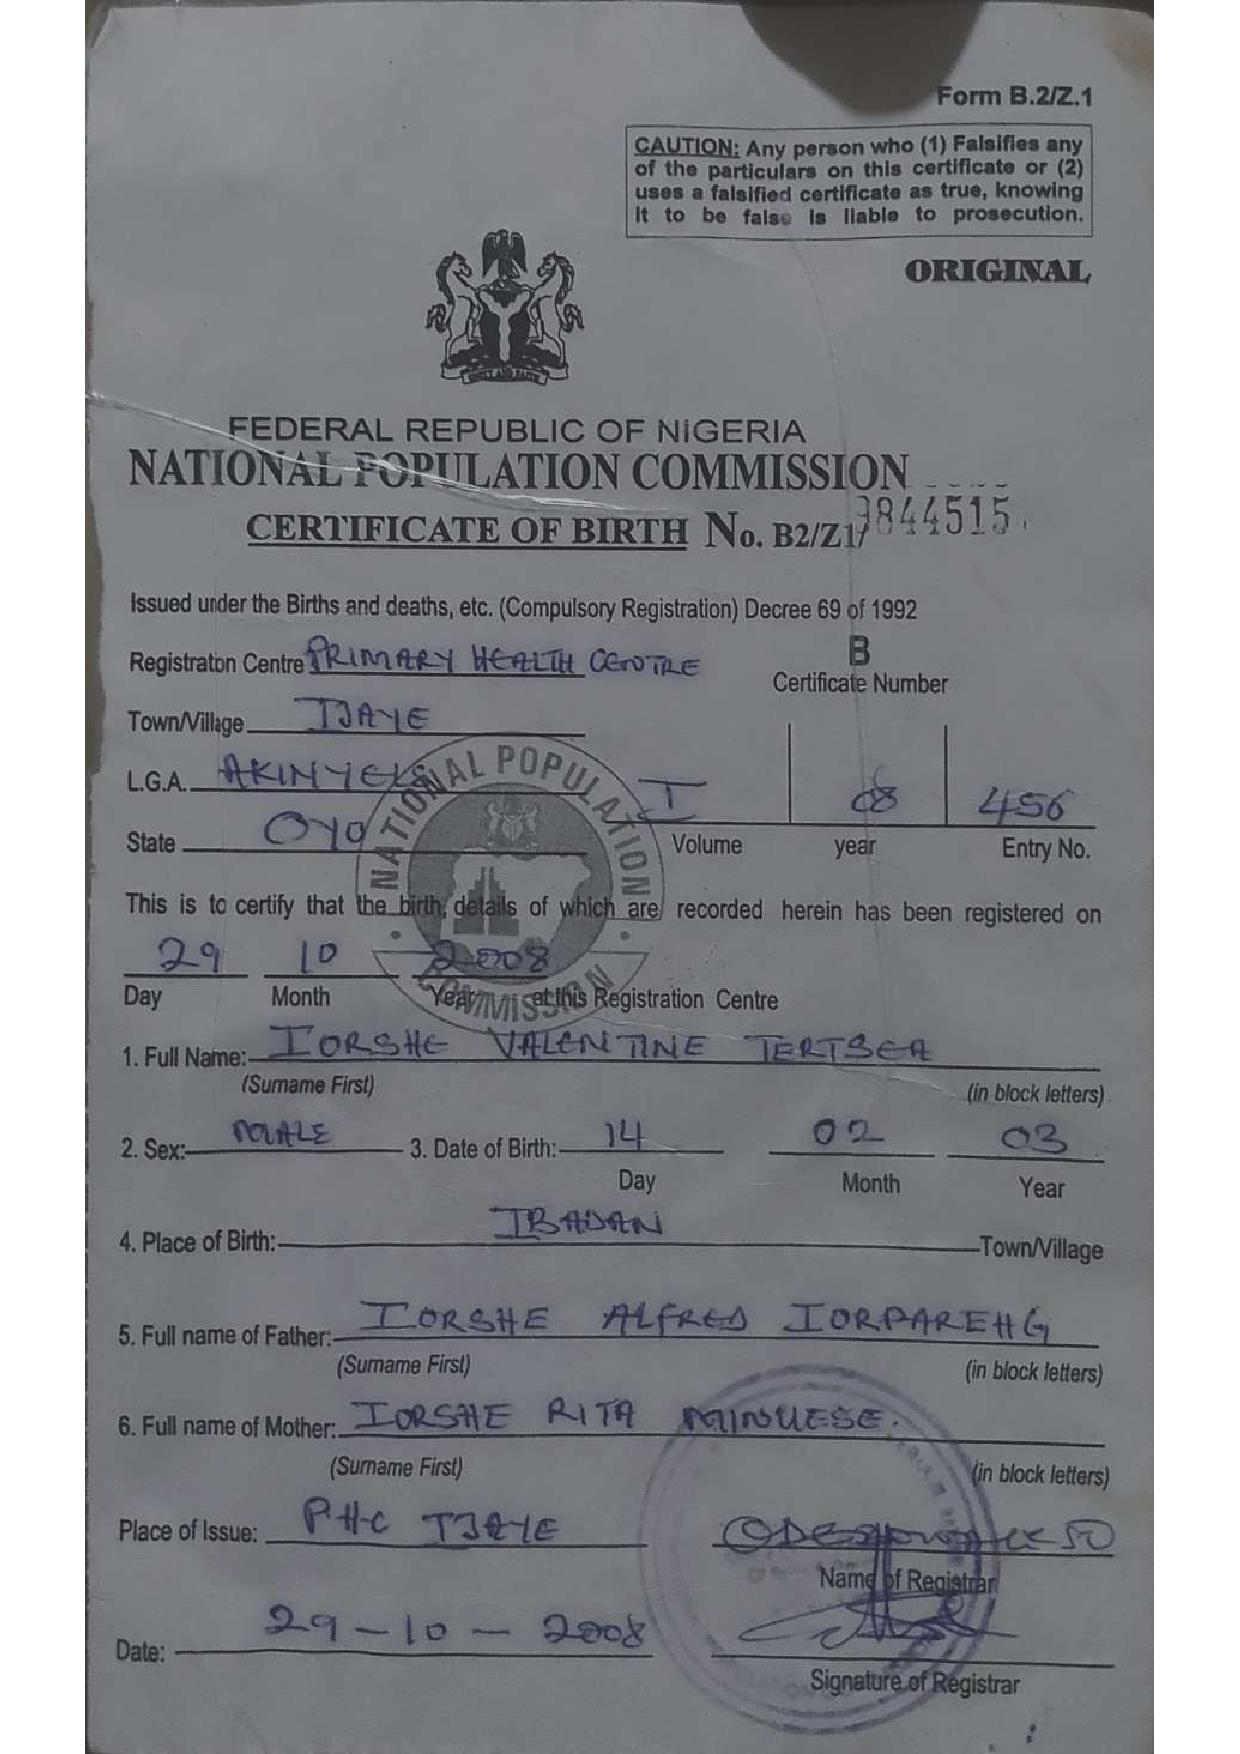 Form B.2/Z.1
CAUTION: Any person who (1) Falsifies any
of the particulars on this certificate or (2)
uses a falsified certificate as true, knowing
it to be false is liable to prosecution.
ORIGINAL
FEDERAL REPUBLIC OF NIGERIA
NATIONAL POPULATION COMMISSION
CERTIFICATE OF BIRTH No. B2/Z1/ 9844515
Issued under the Births and deaths, etc. (Compulsory Registration) Decree 69 of 1992
Registraton Centre PRIMARY HEALTH CENTRE
B
Certificate Number
Town/Village IJAYE
L.G.A. AKINYELE
State OYO
I 08 456
Volume year Entry No.
NATIONAL POPULATION COMMISSION
This is to certify that the birth, details of which are recorded herein has been registered on
29 10 2008
Day Month Year at this Registration Centre
1. Full Name: IORSHE VALENTINE TERTSEA
(Surname First) (in block letters)
2. Sex: MALE 3. Date of Birth: 14 02 03
Day Month Year
4. Place of Birth: IBADAN Town/Village
5. Full name of Father: IORSHE ALFRED IORPAREHG
(Surname First) (in block letters)
6. Full name of Mother: IORSHE RITA
(Surname First) (in block letters)
Place of Issue: PHC IJAYE
Name of Registrar
Date: 29-10-2008
Signature of Registrar